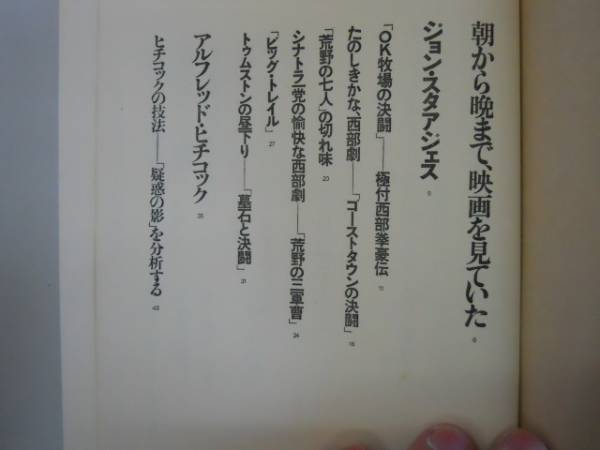 朝から晩まで、映画を見ていた 6
ジョン・スタアジェス 9
「OK牧場の決闘」――極付西部拳豪伝 11
たのしきかな、西部劇――「ゴーストタウンの決闘」 16
「荒野の七人」の切れ味 20
シナトラ一党の愉快な西部劇――「荒野の三軍曹」 24
「ビッグ・トレイル」 27
トゥムストンの昼下り――「墓石と決闘」 31
アルフレッド・ヒチコック 35
ヒチコックの技法――「疑惑の影」を分析する 48